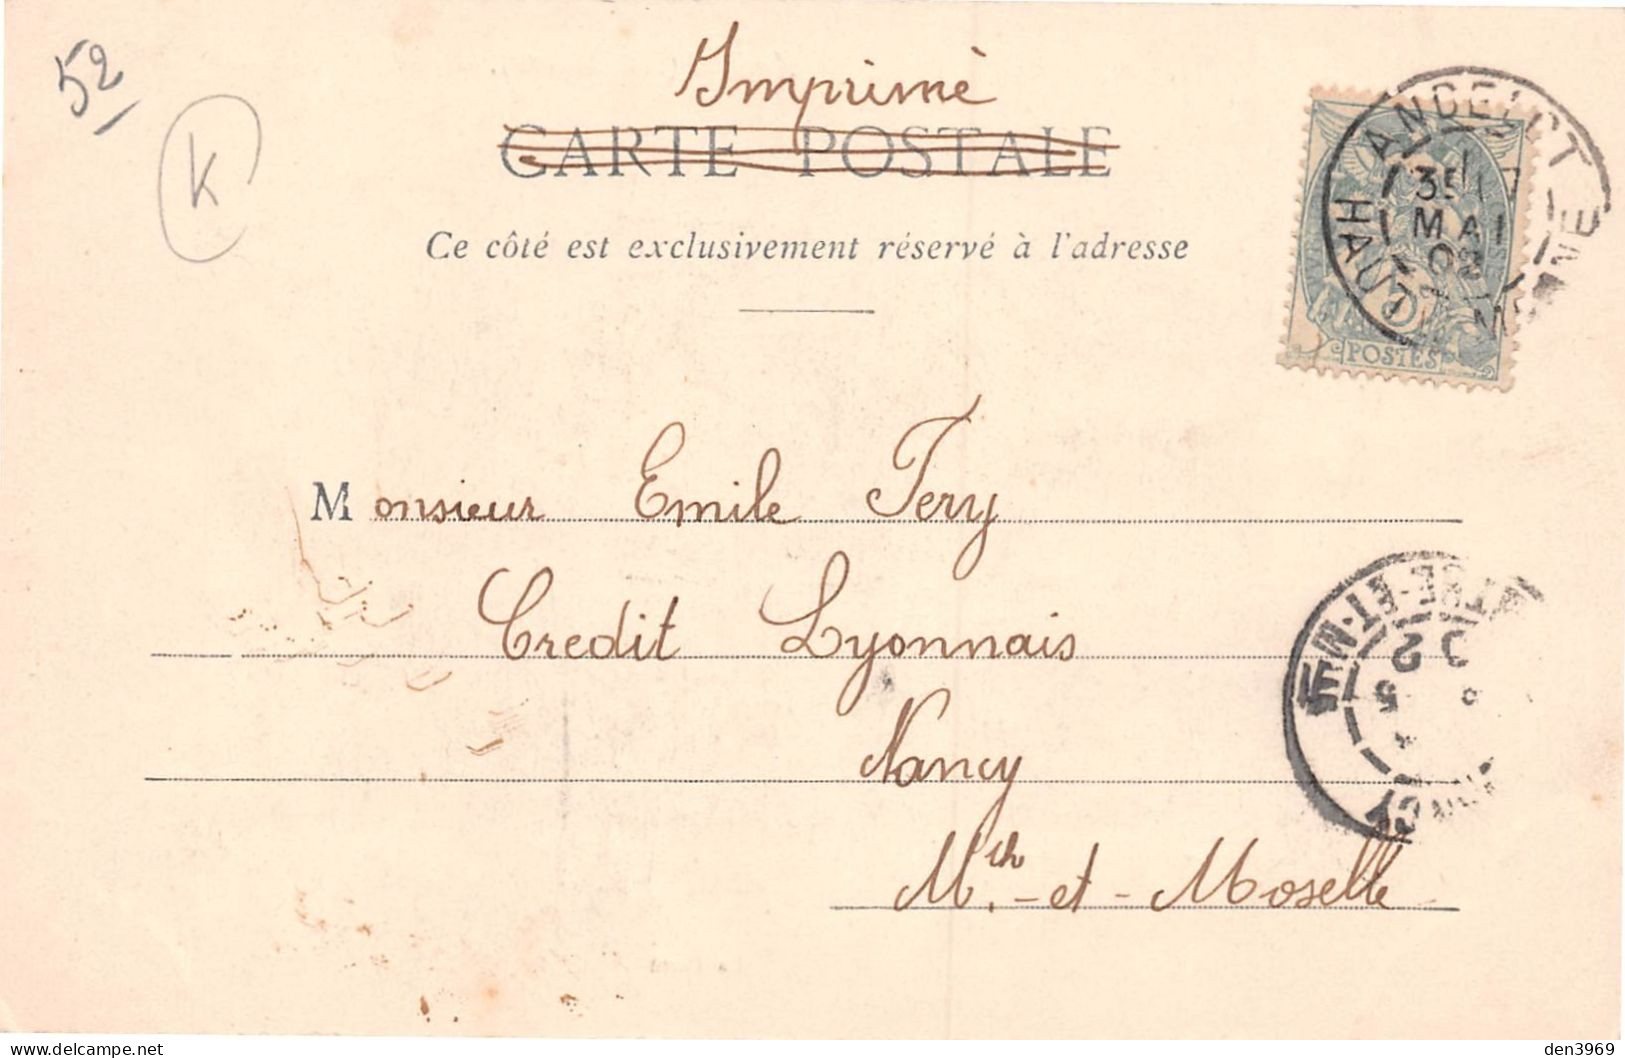 52
K
Imprimé
CARTE POSTALE
Ce côté est exclusivement réservé à l'adresse
ANDELOT
MAI
02
HAUTE MARNE
POSTES
Monsieur Emile Fery
Credit Lyonnais
Nancy
Mthe-et-Moselle
NANCY
den3969